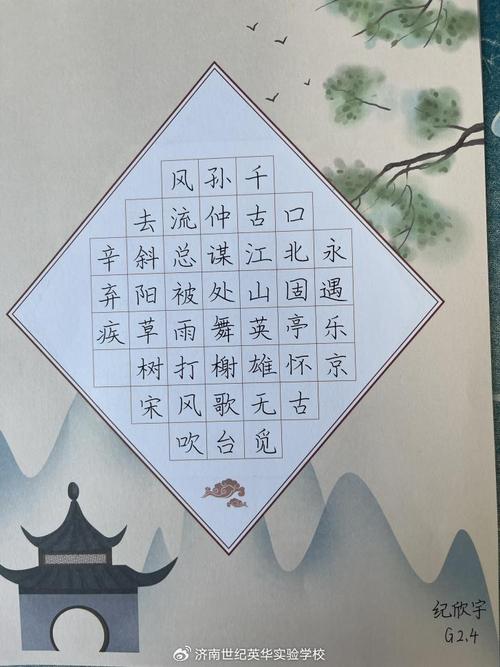 永遇乐京
口北固亭怀古
千古江山英雄无觅
孙仲谋处舞榭歌台
风流总被雨打风吹
去斜阳草树宋
辛弃疾
纪欣宇
G2.4
济南世纪英华实验学校